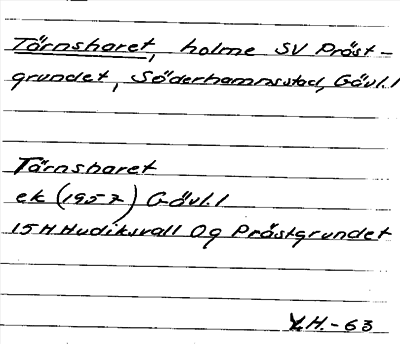 Tärnsharet, holme SV Präst-
grundet, Söderhamns stad, Gävl. l
Tärnsharet
ek (1957) Gävl. l
15H Hudiksvall 0g Prästgrundet
H. - 63